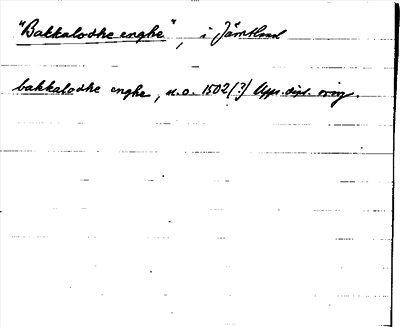 "Bakkalodhe enghe", i Jämtland
bakkalodhe enghe, u.o. 1502(?) Upps. dipl. orig.